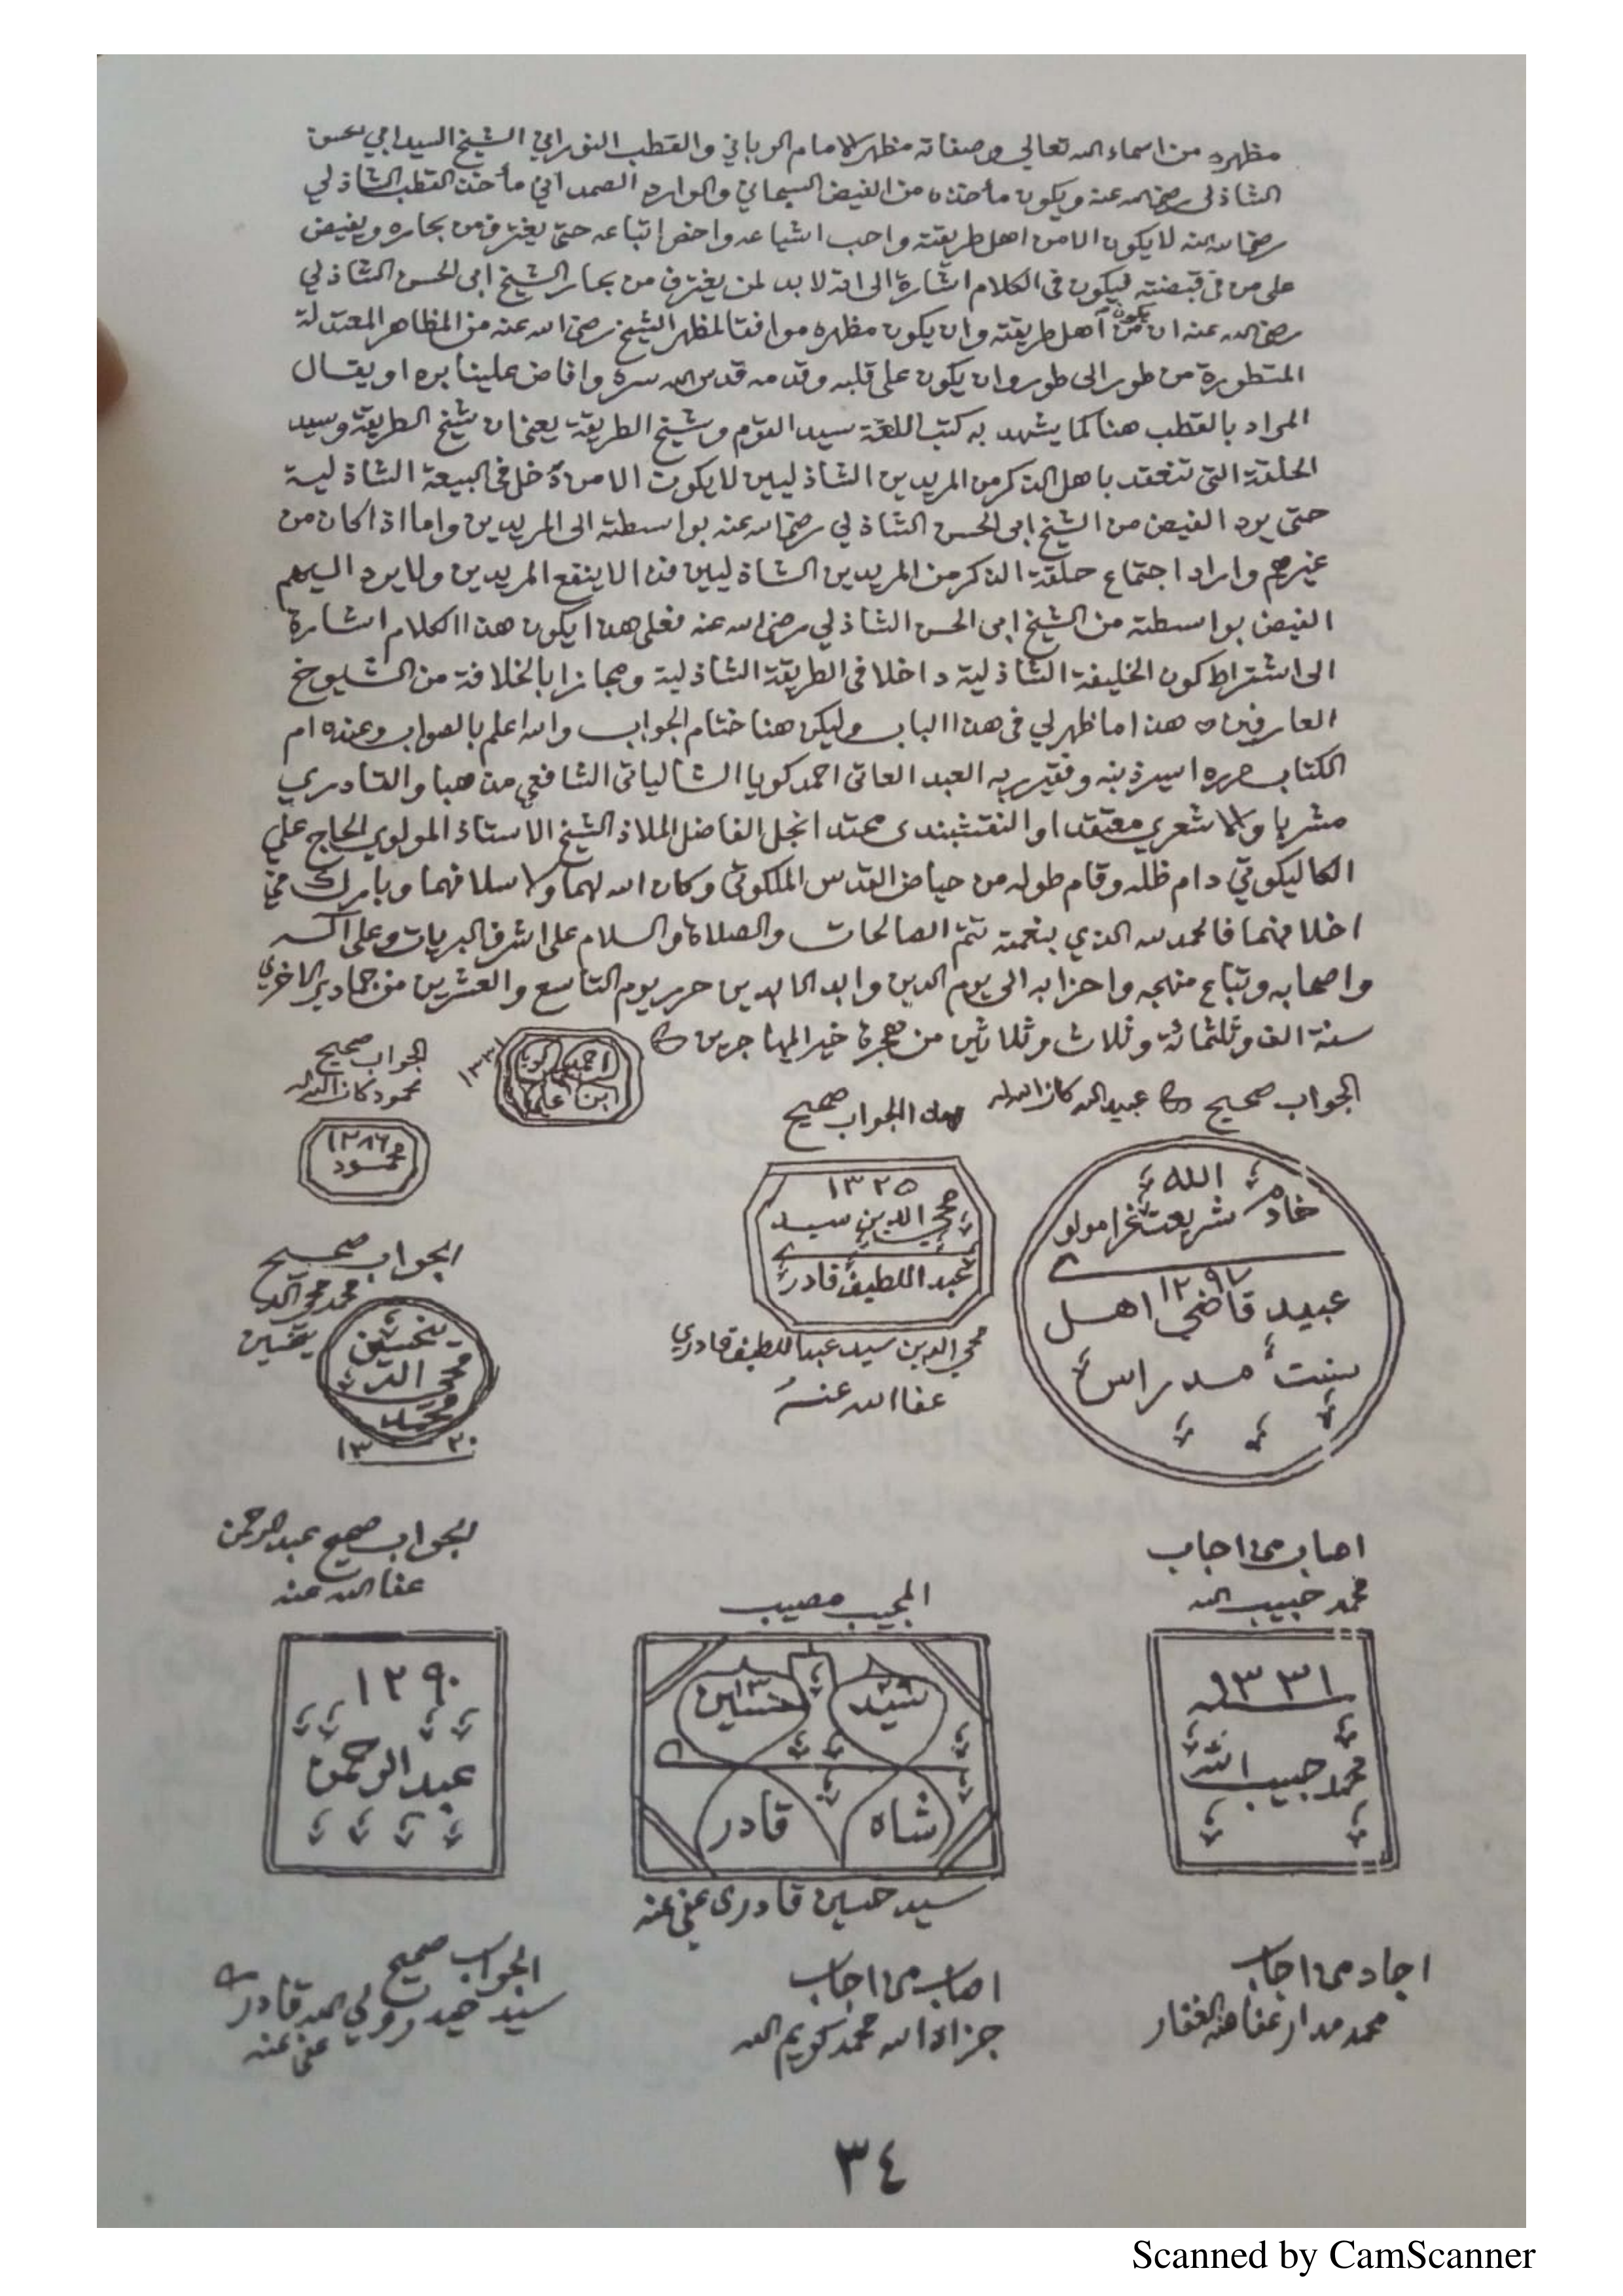 مظهره من اسماء الله تعالى وصفاته مظهر الامام الرباني والقطب النوراني الشيخ السيد ابي الحسن
الشاذلي رضي الله عنه ويكون مأخذه من الفيض السبحاني والوارد الصمداني مأخذ القطب الشاذلي
رضي الله عنه لا يكون الا من اهل طريقته واحب اشياعه واخص اتباعه حتى يغترف من بحاره ويفيض
على من في قبضته فيكون في الكلام اشارة الى انه لا بد لمن يغترف من بحار الشيخ ابي الحسن الشاذلي
رضي الله عنه ان يكون من اهل طريقته وان يكون مظهره موافقا لمظهر الشيخ رضي الله عنه من المظاهر المعتدلة
المتطورة من طور الى طور وان يكون على قلبه وقدمه قدس الله سره وافاض علينا بره او يقال
المراد بالقطب هنا كما يشهد به كتب اللغة سيد القوم وشيخ الطريقة يعني ان شيخ الطريقة وسيد
الحلقة التي تنعقد باهل الذكر من المريدين الشاذليين لا يكون الا من دخل في البيعة الشاذلية
حتى يرد الفيض من الشيخ ابي الحسن الشاذلي رضي الله عنه بواسطته الى المريدين واما اذا كان من
غيرهم واراد اجتماع حلقة الذكر من المريدين الشاذليين فذا لا ينفع المريدين ولا يرد اليهم
الفيض بواسطته من الشيخ ابي الحسن الشاذلي رضي الله عنه فعلى هذا يكون هذا الكلام اشارة
الى اشتراط كون الخليفة الشاذلية داخلا في الطريقة الشاذلية ومجازا بالخلافة من الشيوخ
العارفين ه هذا ما ظهر لي في هذا الباب وليكن هنا ختام الجواب والله اعلم بالصواب وعنده ام
الكتاب حرره اسير ذنبه وفقير ربه العبد العاتي احمد كويا الشالياتي الشافعي مذهبا والقادري
مشربا والاشعري معتقدا والنقشبندي محتدا نجل الفاضل الملاذ الشيخ الاستاذ المولوي الحاج علي
الكاليكوتي دام ظله وقام طوله من حياض القدس الملكوتي وكان الله لهما ولاسلافهما وبارك في
اخلافهما فالحمد لله الذي بنعمته تتم الصالحات والصلاة والسلام على اشرف البريات وعلى آله
واصحابه وتباع منهجه واحزابه الى يوم الدين وابد الابدين حرر يوم التاسع والعشرين من جمادى الاخرى
سنة الف وثلثمائة وثلاث وثلاثين من هجرة خير المهاجرين
احمد كويا
ابن علي
١٣٣١
الجواب صحيح
محمود كان الله له
١٢٨٦
محمود
الجواب صحيح عبيد الله كان الله له
الجواب صحيح
الله
خادم شريعت غرا مولوي
١٢٩٧
عبيد قاضي اهل
سنت مدراس
١٣٢٥
محي الدين سيد
عبد اللطيف قادري
محي الدين سيد عبد اللطيف قادري
عفا الله عنه
الجواب صحيح
محمد محي الدين
محي الدين
محمد
١٣٢٠
اصاب من اجاب
محمد حبيب الله
١٣٣١
محمد حبيب الله
المجيب مصيب
سيد حسين
١٣٢٩
شاه قادري
سيد حسين قادري عفي عنه
الجواب صحيح عبد الرحمن
عفا الله عنه
١٢٩٠
عبد الرحمن
اجاد من اجاب
محمد مدار عفا عنه الغفار
اصاب من اجاب
جزاه الله محمد كريم الله
الجواب صحيح
سيد حيدر ولي الله قادري
عفي عنه
٣٤
Scanned by CamScanner